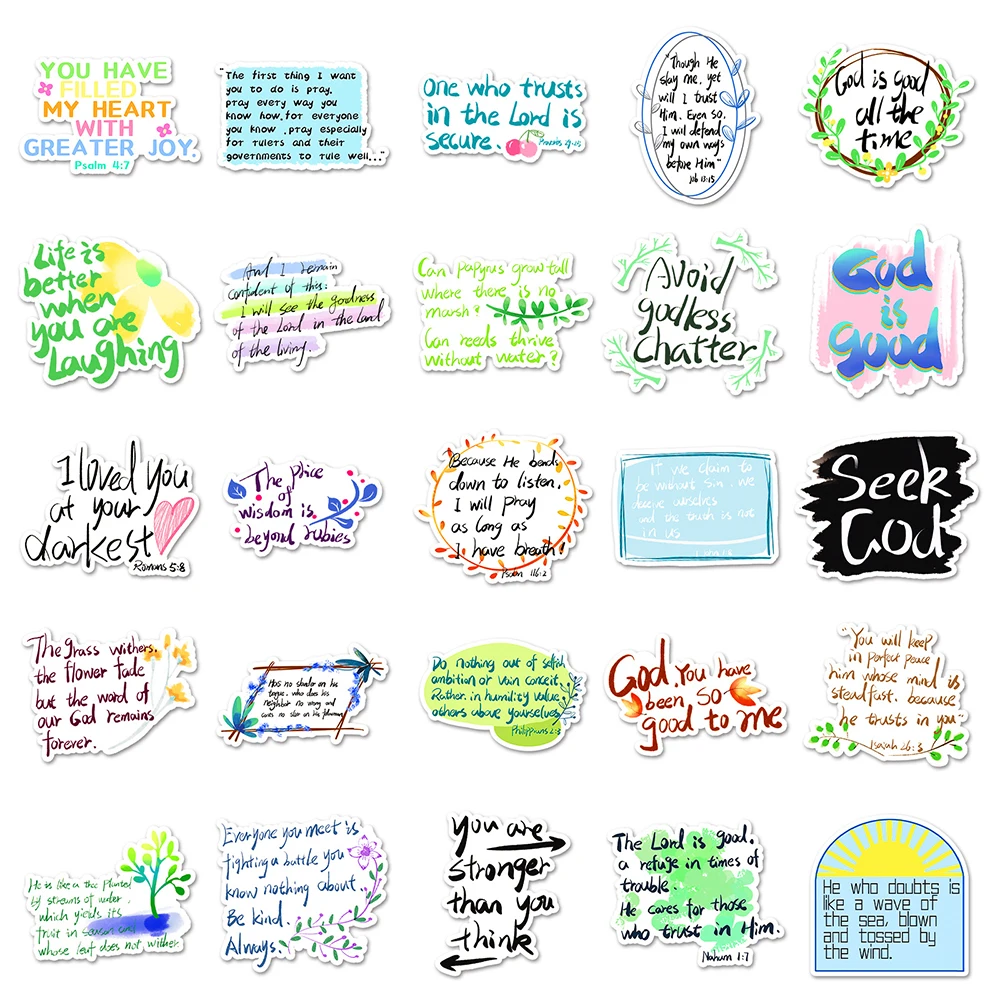 YOU HAVE
FILLED
MY HEART
WITH
GREATER JOY.
Psalm 4:7
"The first thing I want
you to do is pray.
pray every way you
know how,for everyone
you know ,pray especially
for rulers and their
governments to rule well..."
One who trusts
in the Lord is
secure.
"Though He
slay me, yet
will I trust
Him. Even so,
I will defend
my own ways
before Him"
Job 13:15
God is good
all the
time
Life is
better
when
you are
Laughing
And I remain
confident of this:
I will see the goodness
of the Lord in the land
of the living.
Can papyrus grow tall
where there is no
marsh?
Can reeds thrive
without water?
Avoid
godless
chatter
God
is
good
I loved you
at your
darkest
Romans 5:8
The Price
of
wisdom is
beyond rubies
Because He bends
down to listen,
I will pray
as long as
I have breath!
Psalm 116:2
If we claim to
be without sin, we
deceive ourselves
and the truth is not
in us
Seek
God
The grass withers.
the flower fade
but the word of
our God remains
forever.
Has no slander on his
tongue, who does his
neighbor no wrong and
casts no slur on his
Do nothing out of selfish
ambition or vain conceit.
Rather, in humility value
others above yourselves
Philippians 2:3
God. You have
been so
good to me
"You will keep
in perfect peace
him whose mind is
steadfast. because
he trusts in you"
Isaiah 26:3
He is like a tree planted
by streams of water,
which yields its
fruit in season and
whose leaf does not wither
Everyone you meet is
fighting a battle you
know nothing about..
Be kind.
Always.
you are
stronger
than you
think
The Lord is good,
a refuge in times of
trouble.
He cares for those
who trust in Him.
Nahum 1:7
He who doubts is
like a wave of
the sea, blown
and tossed by
the wind.